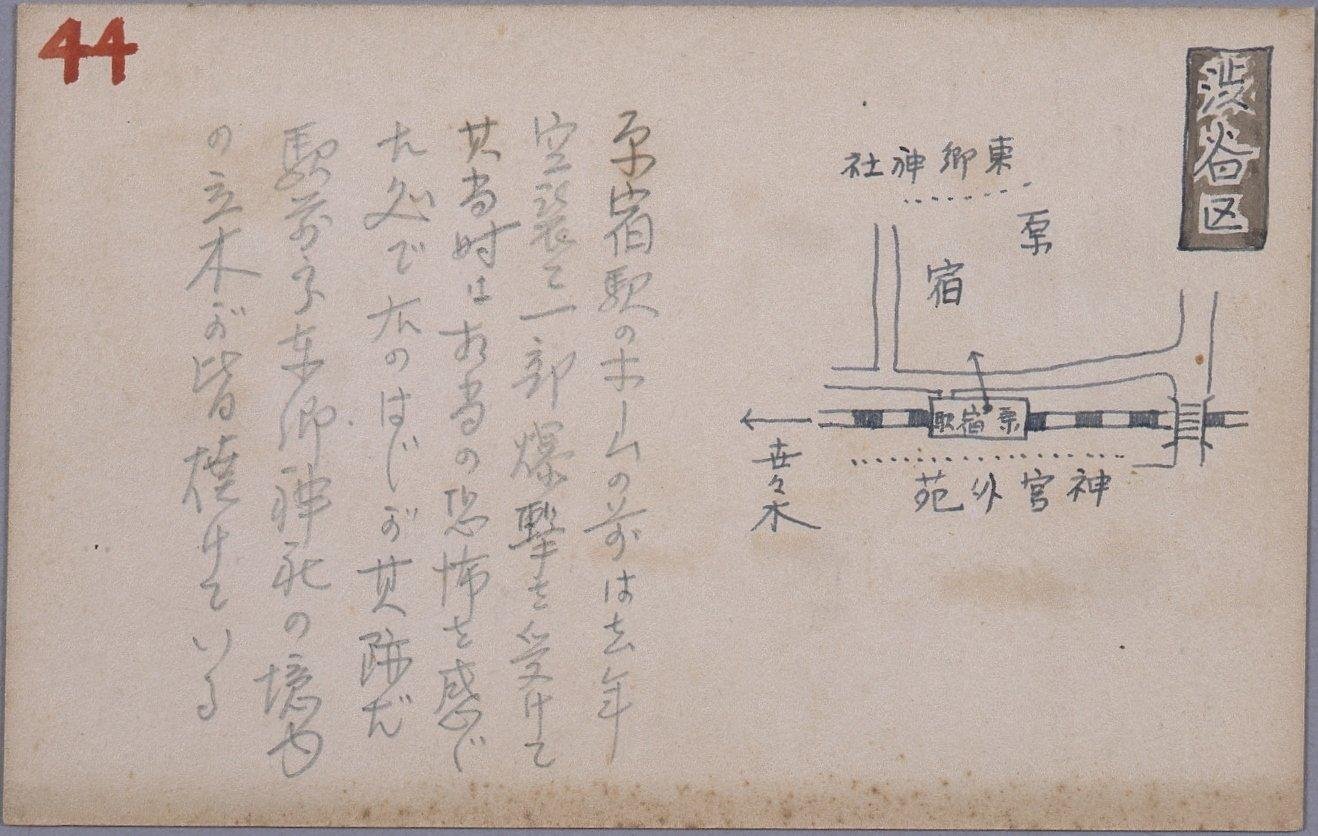 44
渋谷区
東郷神社
原
宿
原宿駅
神宮外苑
世々木
原宿駅のホームの前は去年
空襲で一部爆撃を受けて
其当時は相当の恐怖を感じ
た処で右のはじが其跡だ
駅前から東郷神社の境内
の立木が皆焼けている